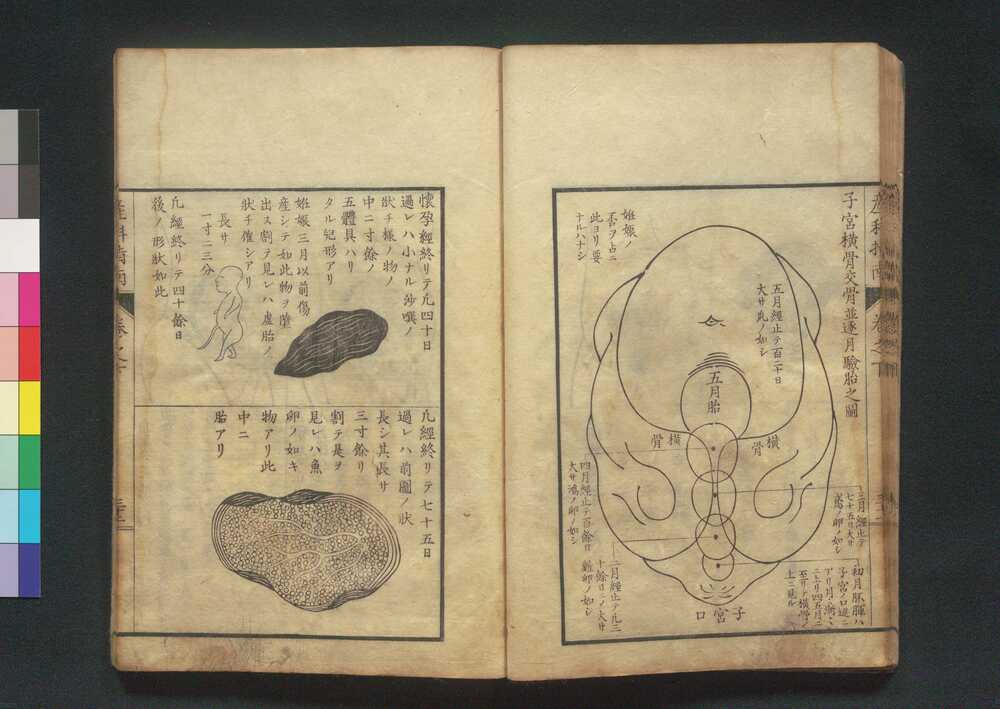 子宮横骨交骨並逐月驗胎之圖
姙娠ノ
否ヲ占ニ
此ヨリ要
ナルハナシ
五月經止テ百二十日
大サ瓜ノ如シ
五月胎
横骨
横骨
三月經止テ
七十五日大サ
鳬ノ卵ノ如シ
四月經止テ百餘日
大サ鴻ノ卵ノ如シ
二月經止テ凡三
十餘日ニノ大サ
雞卵ノ如シ
初月胚腪ハ
子宮ノ口邊ニ
アリ月ニ漸ミ
ニ上リ四五月ニ
至リテ横骨ノ
上ニ見ル
子宮口
懷孕經終リテ凡四十日
過レハ小ナル沙噀ノ
狀チ様ノ物ノ
中ニ寸餘ノ
五體具ハリ
タル兒形アリ
姙娠三月以前傷
産シテ如此物ヲ墮
出ス割テ見レハ虚胎ノ
狀チ催シアリ
長サ
一寸二三分
凡經終リテ四十餘日
後ノ形狀如此
凡經終リテ七十五日
過レハ前圖ノ狀
長シ其長サ
三寸餘リ
割テ是ヲ
見レハ魚
卵ノ如キ
物アリ此
中ニ
胎アリ
産科指南
卷之